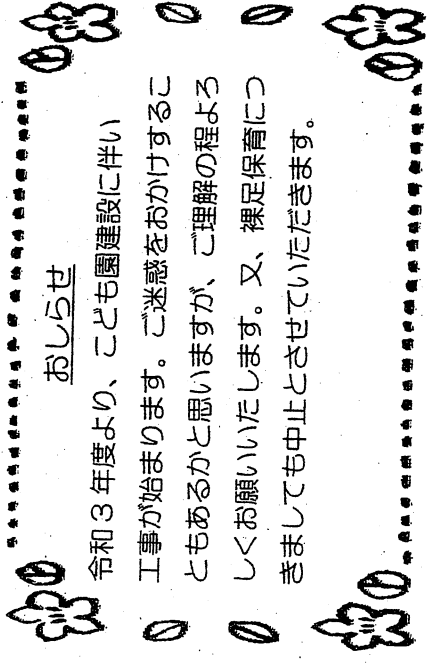 おしらせ
令和3年度より、こども園建設に伴い
工事が始まります。ご迷惑をおかけするこ
ともあるかと思いますが、ご理解の程よろ
しくお願いいたします。又、裸足保育につ
きましても中止とさせていただきます。